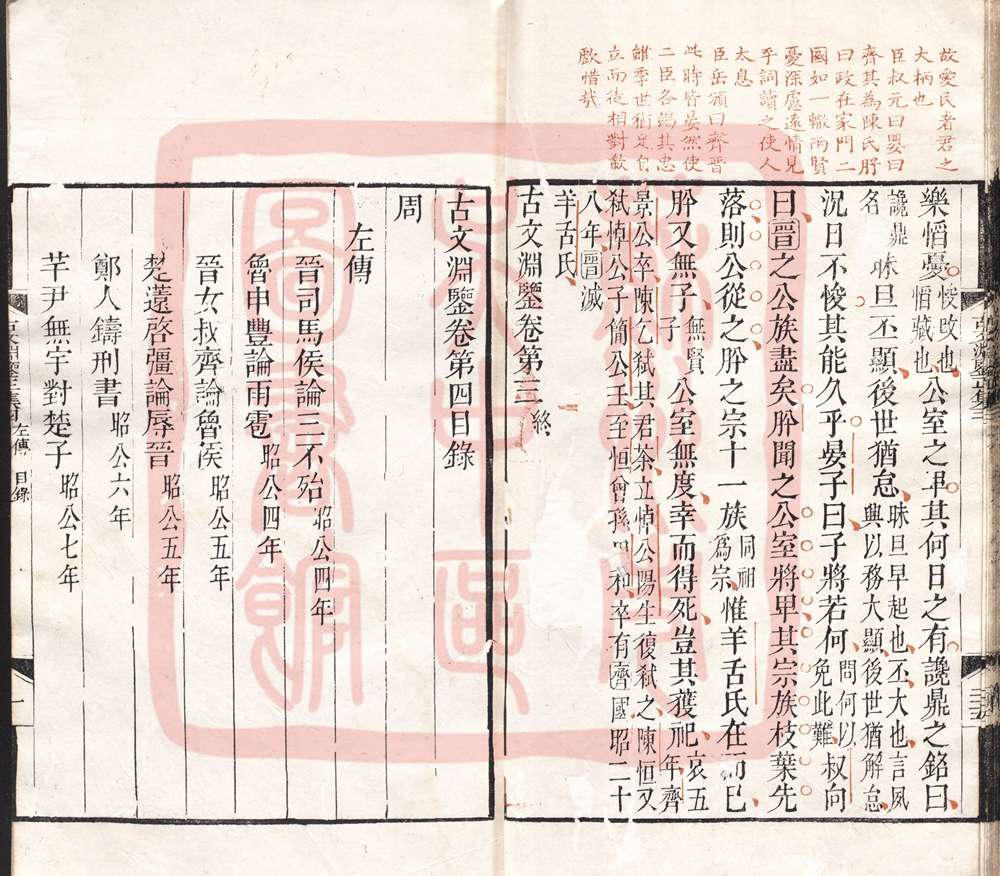 故愛民者君之
大柄也
臣叔元曰晏曰
齊其為陳氏肸
曰政在家門二
國如一轍兩賢
憂深慮遠情見
乎詞讀之使人
太息
臣岳頒曰齊晉
此時皆晏然使
二臣各竭其忠
雖季世猶足自
立而徒相對欷
歔惜哉
樂慆憂悛改也慆藏也公室之卑其何日之有讒鼎之銘曰
讒鼎名昧旦丕顯後世猶怠昧旦早起也丕大也言夙興以務大顯後世猶解怠
況日不悛其能久乎晏子曰子將若何問何以免此難叔向
曰晉之公族盡矣肸聞之公室將卑其宗族枝葉先
落則公從之肸之宗十一族同祖為宗惟羊舌氏在而已
肸又無子無賢子公室無度幸而得死豈其獲祀哀五年齊
景公卒陳乞弒其君荼立悼公陽生復弒之陳恒又
弒悼公子簡公壬至恒曾孫 和卒有齊國昭二十
八年晉滅
羊舌氏
古文淵鑒卷第三 終
古文淵鑒 三
三五
古文淵鑒卷第四目錄
周
左傳
晉司馬侯論三不殆 昭公四年
魯申豐論雨雹 昭公四年
晉女叔齊論魯侯 昭公五年
楚薳啓彊論辱晉 昭公五年
鄭人鑄刑書 昭公六年
芊尹無宇對楚子 昭公七年
左傳 目錄
一
圖書館